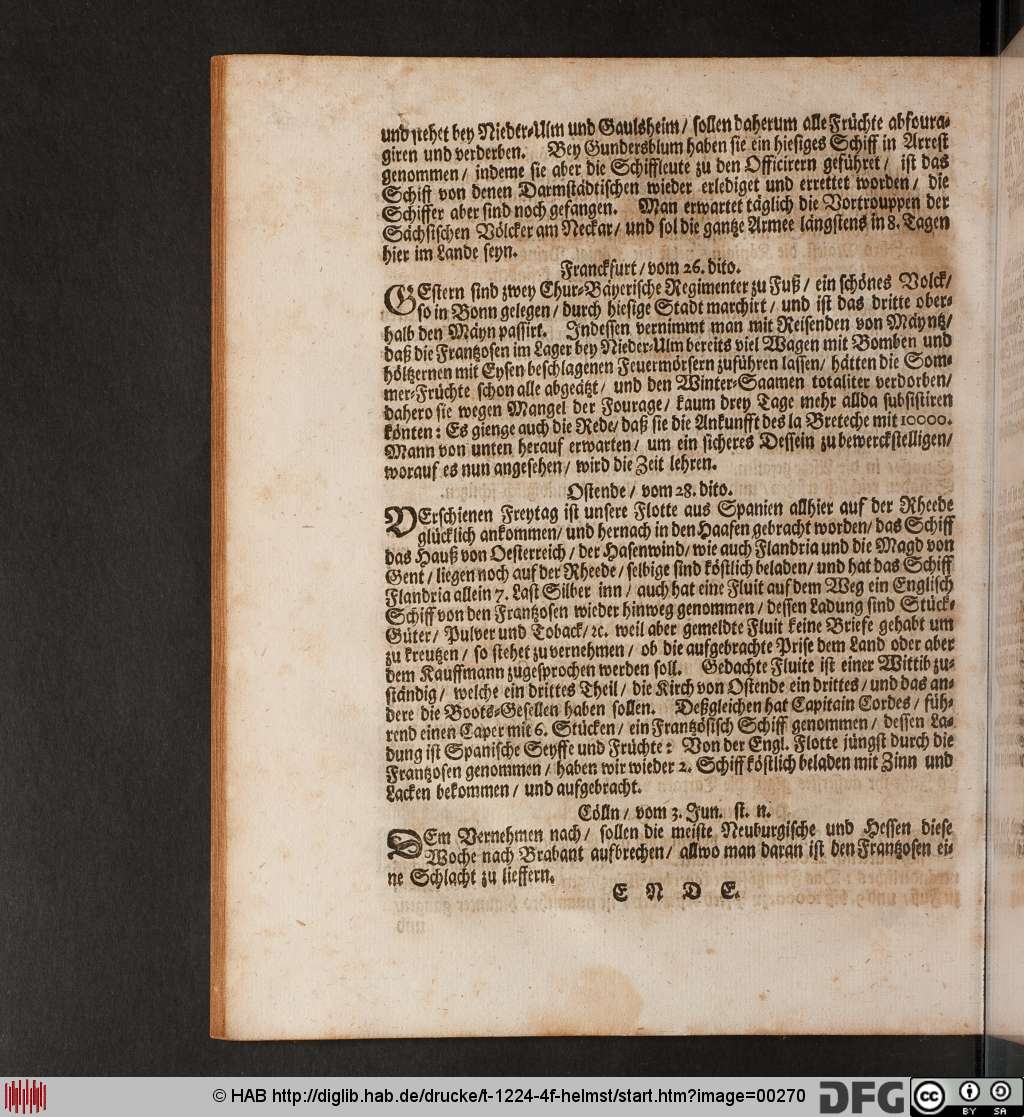 und stehet bey Nieder-Ulm und Gaulsheim / sollen daherum alle Früchte abfoura-
giren und verderben. Bey Gundersblum haben sie ein hiesiges Schiff in Arrest
genommen / indeme sie aber die Schiffleute zu den Officirern geführet / ist das
Schiff von denen Darmstädtischen wieder erlediget und errettet worden / die
Schiffer aber sind noch gefangen. Man erwartet täglich die Vortrouppen der
Sächsischen Völcker am Neckar / und sol die gantze Armee längstens in 8. Tagen
hier im Lande seyn.
Franckfurt / vom 26. dito.
GEstern sind zwey Chur-Bäyerische Regimenter zu Fuß / ein schönes Volck /
so in Bonn gelegen / durch hiesige Stadt marchirt / und ist das dritte ober-
halb den Mäyn passirt. Indessen vernimmt man mit Reisenden von Mäyntz /
daß die Frantzosen im Lager bey Nieder-Ulm bereits viel Wagen mit Bomben und
höltzernen mit Eysen beschlagenen Feuermörsern zuführen lassen / hätten die Som-
mer-Früchte schon alle abgeätzt / und den Winter-Saamen totaliter verdorben /
dahero sie wegen Mangel der Fourage / kaum drey Tage mehr allda subsistiren
könten: Es gienge auch die Rede / daß sie die Ankunfft des la Breteche mit 10000.
Mann von unten herauf erwarten / um ein sicheres Dessein zu bewerckstelligen /
worauf es nun angesehen / wird die Zeit lehren.
Ostende / vom 28. dito.
VErschienen Freytag ist unsere Flotte aus Spanien allhier auf der Rheede
glücklich ankommen / und hernach in den Haafen gebracht worden / das Schiff
das Hauß von Oesterreich / der Hasenwind / wie auch Flandria und die Magd von
Gent / liegen noch auf der Rheede / selbige sind köstlich beladen / und hat das Schiff
Flandria allein 7. Last Silber inn / auch hat eine Fluit auf dem Weg ein Englisch
Schiff von den Frantzosen wieder hinweg genommen / dessen Ladung sind Stück-
Güter / Pulver und Toback / ꝛc. weil aber gemeldte Fluit keine Briefe gehabt um
zu kreutzen / so stehet zu vernehmen / ob die aufgebrachte Prise dem Land oder aber
dem Kauffmann zugesprochen werden soll. Gedachte Fluite ist einer Wittib zu-
ständig / welche ein drittes Theil / die Kirch von Ostende ein drittes / und das an-
dere die Boots-Gesellen haben sollen. Deßgleichen hat Capitain Cordes / füh-
rend einen Caper mit 6. Stücken / ein Frantzösisch Schiff genommen / dessen La-
dung ist Spanische Seyffe und Früchte: Von der Engl. Flotte jüngst durch die
Frantzosen genommen / haben wir wieder 2. Schiff köstlich beladen mit Zinn und
Lacken bekommen / und aufgebracht.
Cölln / vom 3. Jun. st. n.
DEm Vernehmen nach / sollen die meiste Neuburgische und Hessen diese
Woche nach Brabant aufbrechen / allwo man daran ist den Frantzosen ei-
ne Schlacht zu lieffern.
E N D E.
© HAB http://diglib.hab.de/drucke/t-1224-4f-helmst/start.htm?image=00270
DFG
cc BY SA